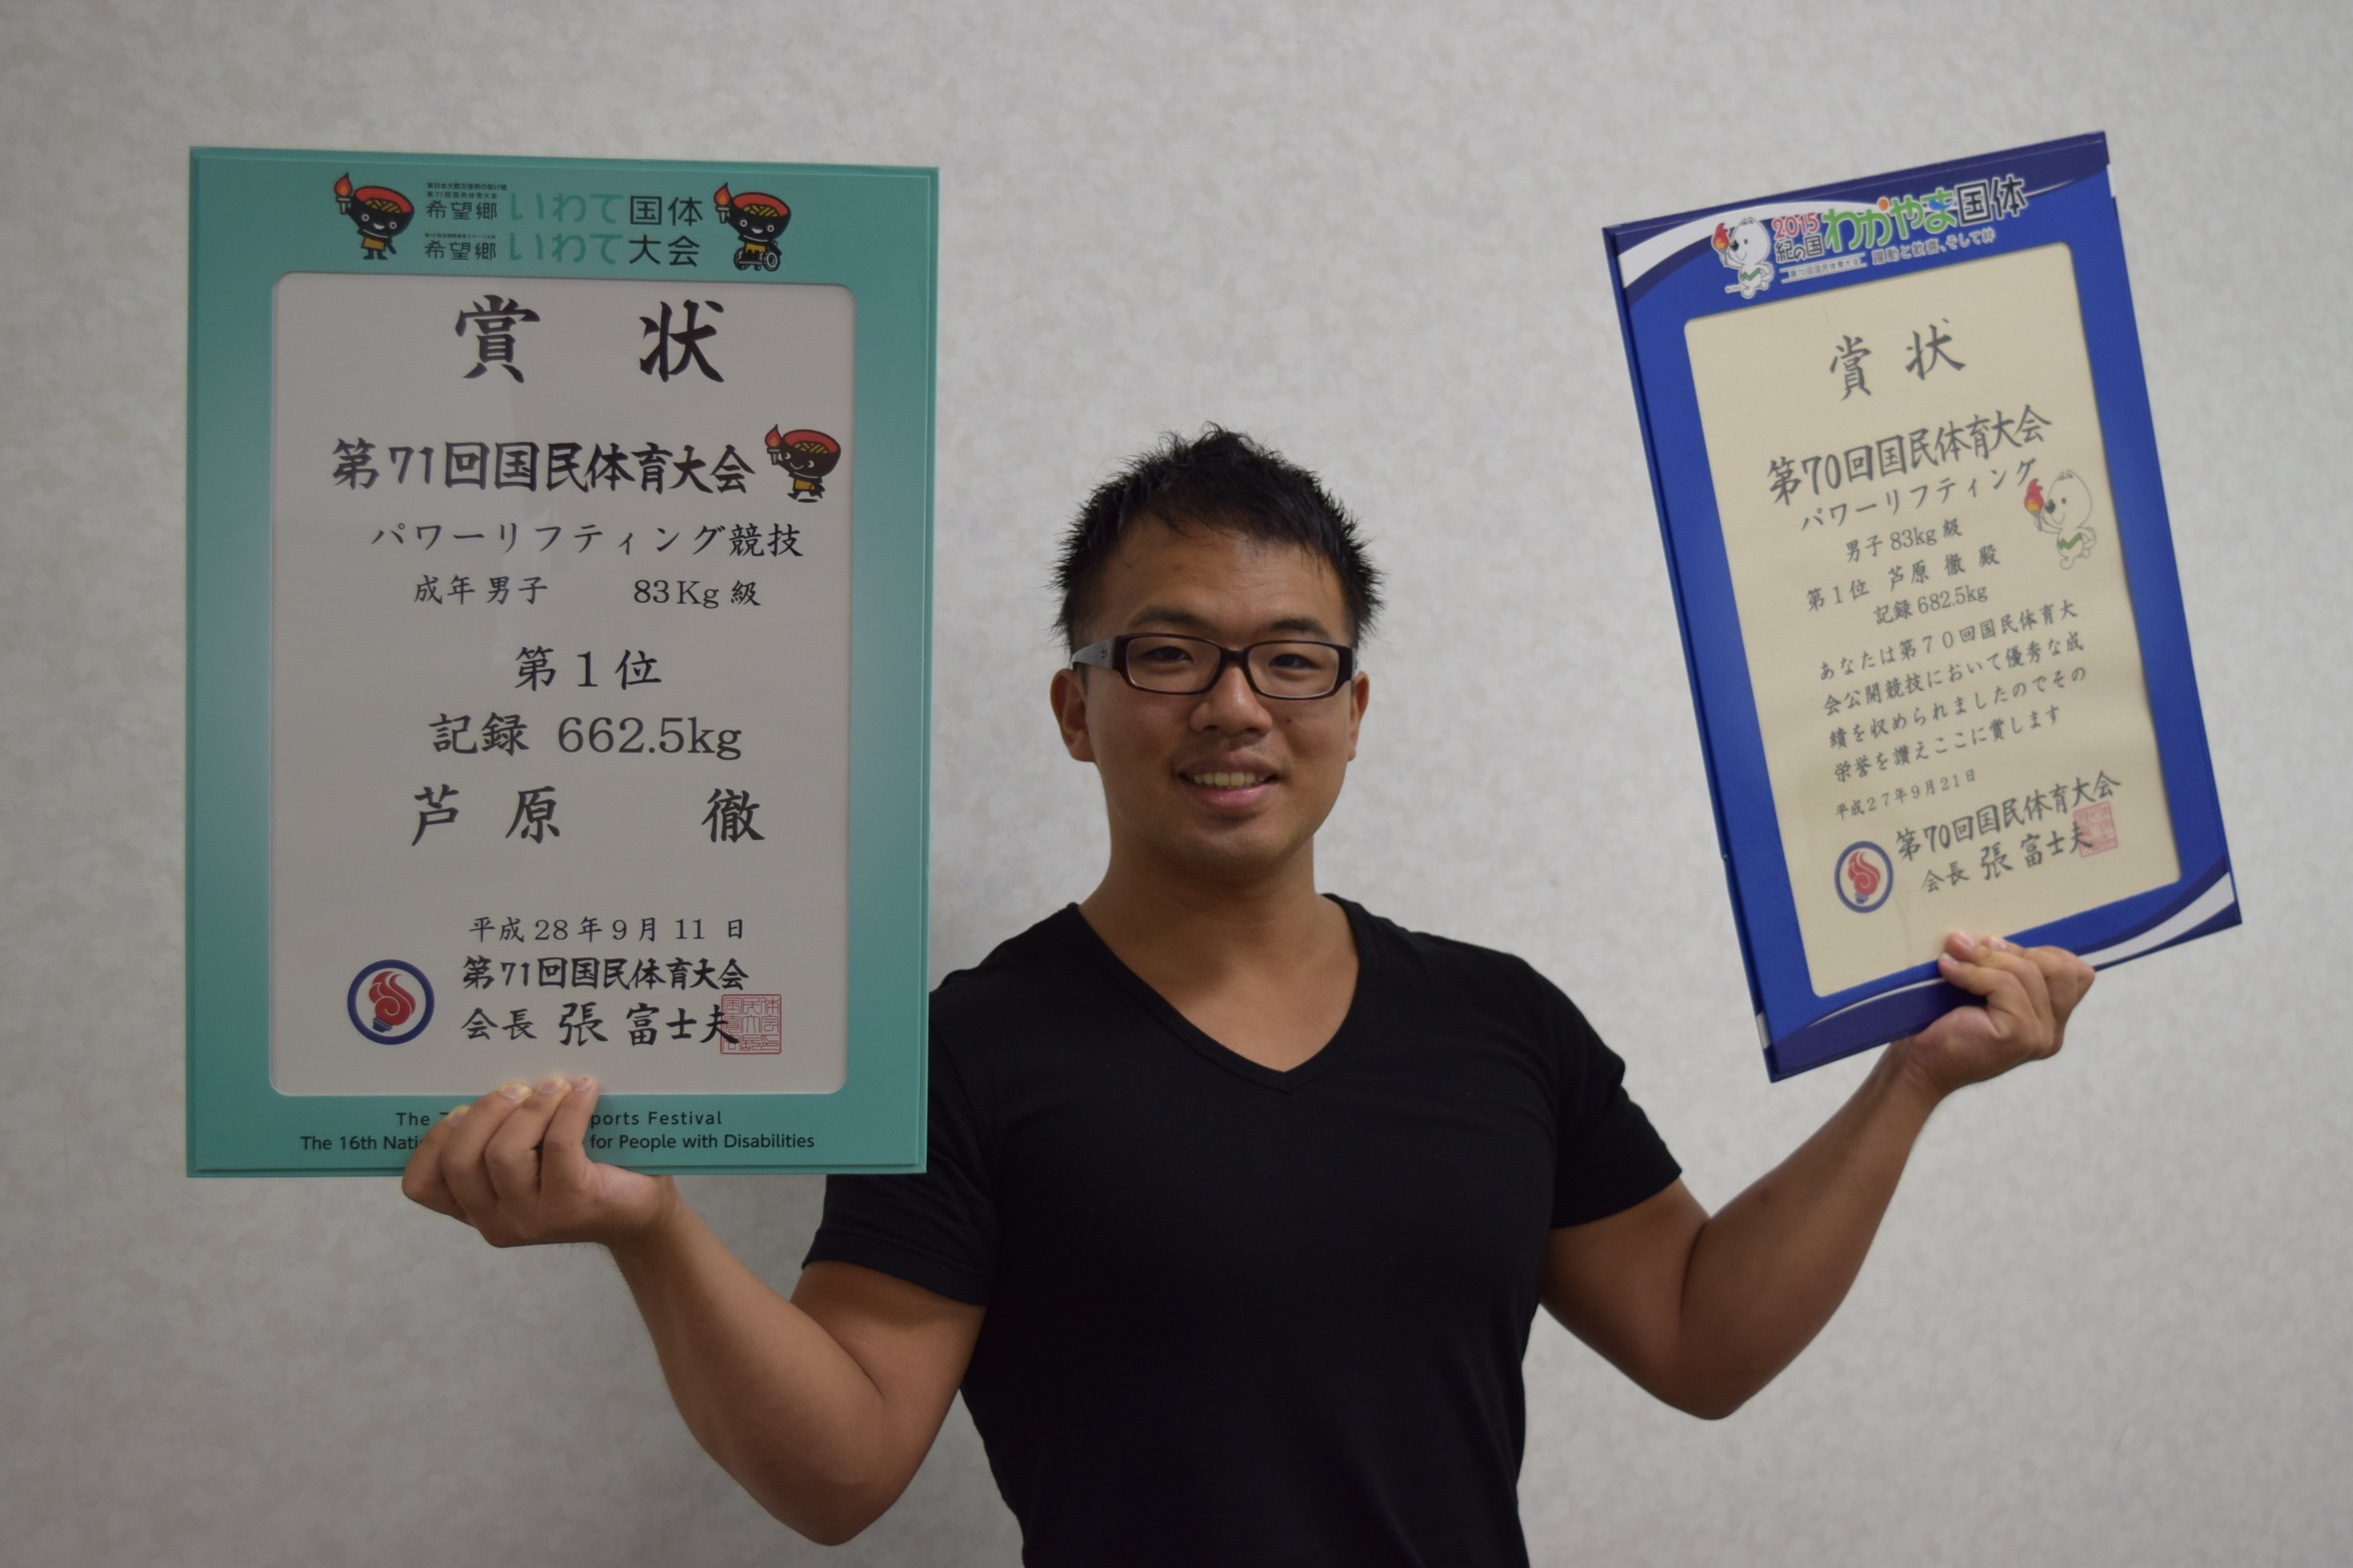 希望郷 いわて国体
希望郷 いわて大会
賞 状
第71回国民体育大会
パワーリフティング競技
成年男子 83Kg級
第1位
記録 662.5kg
芦原 徹
平成28年9月11日
第71回国民体育大会
会長 張 富士夫
The ports Festival
The 16th Nati for People with Disabilities
2015
紀の国わかやま国体
第70回国民体育大会 躍動と歓喜、そして絆
賞状
第70回国民体育大会
パワーリフティング
男子83kg級
第1位 芦原 徹 殿
記録682.5kg
あなたは第70回国民体育大
会公開競技において優秀な成
績を収められましたのでその
栄誉を讃えここに賞します
平成27年9月21日
第70回国民体育大会
会長 張 富士夫